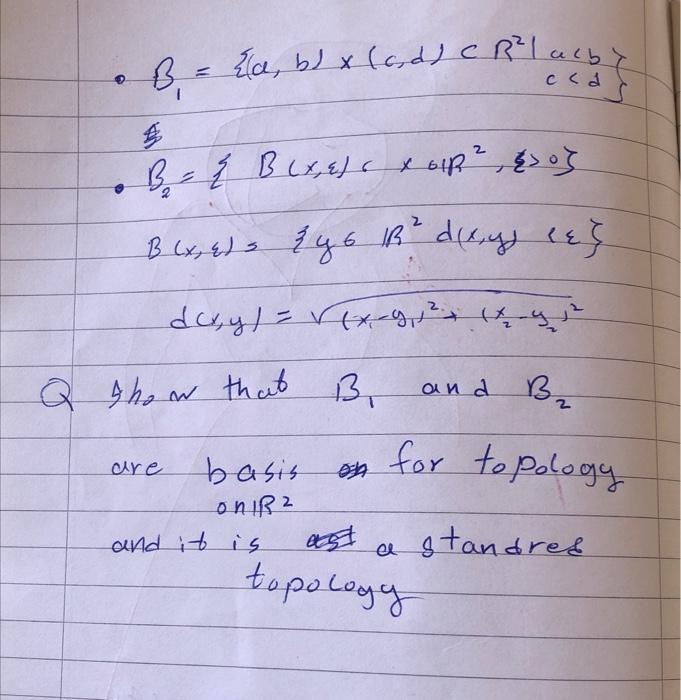 • B₁ = {(a, b) x (c,d) ⊂ R² | a<b
c<d }
• B₂ = { B(x,ε) ; x ∈ IR², ε>0}
B(x,ε) = {y ∈ IR² d(x,y) <ε}
d(x,y) = √(x₁-y₁)² + (x₂-y₂)²
Q show that B₁ and B₂
are basis for topology
on IR²
and it is a standred
topology